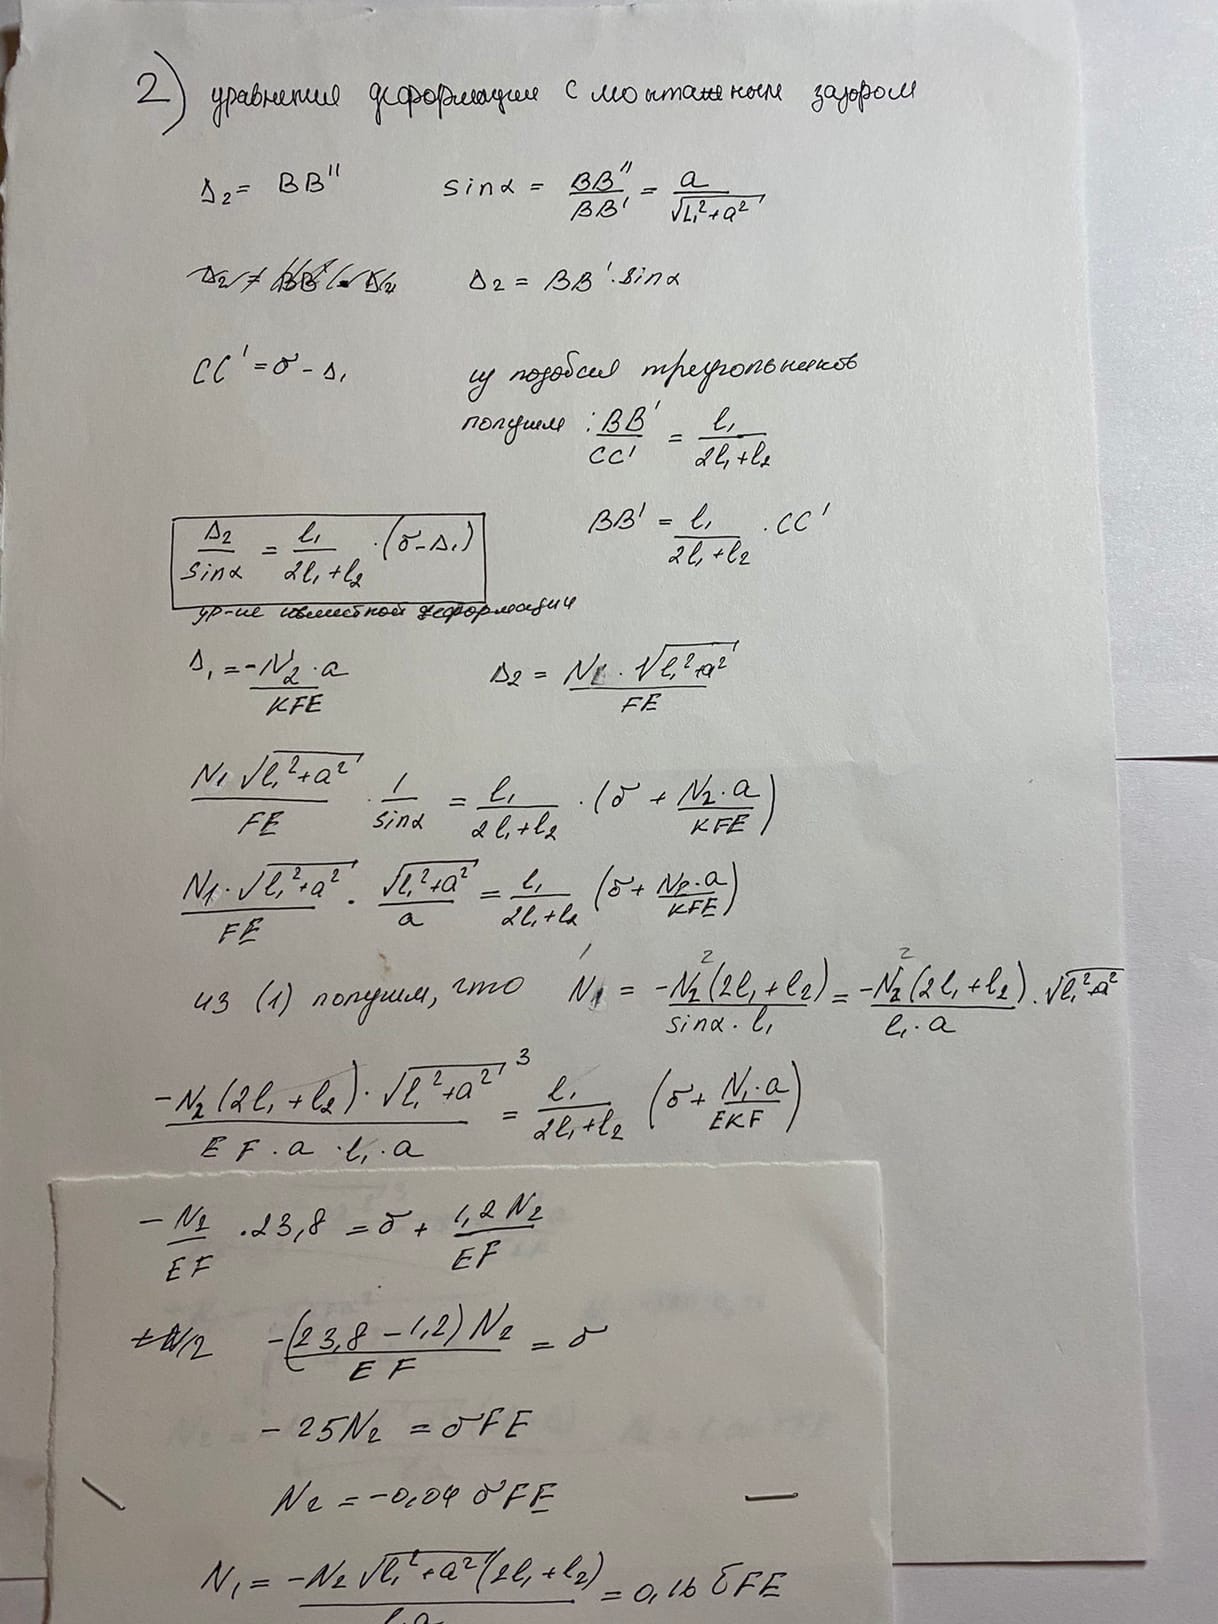 2) уравнения деформации с монтажным зазором
Δ₂ = BB'' sinα = BB''/BB' = a/√(l₁²+a²)
Δ₂ = BB'·sinα
CC' = δ - Δ₁ из подобия треугольников
получим: BB'/CC' = l₁/(2l₁+l₂)
BB' = l₁/(2l₁+l₂) · CC'
Δ₂/sinα = l₁/(2l₁+l₂) · (δ-Δ₁)
ур-ие совместной деформации
Δ₁ = -N₂·a/KFE Δ₂ = N₁·√(l₁²+a²)/FE
N₁√(l₁²+a²)/FE · 1/sinα = l₁/(2l₁+l₂) · (δ + N₂·a/KFE)
N₁·√(l₁²+a²)/FE · √(l₁²+a²)/a = l₁/(2l₁+l₂) (δ + N₂·a/KFE)
из (1) получим, что N₁ = -N₂(2l₁+l₂)/(sinα·l₁) = -N₂(2l₁+l₂)/(l₁·a) · √(l₁²+a²)
-N₂(2l₁+l₂)·√(l₁²+a²)³/(EF·a·l₁·a) = l₁/(2l₁+l₂) (δ + N₁·a/EKF)
-N₂/EF ·23,8 = δ + 1,2N₂/EF
-(23,8-1,2)N₂/EF = δ
-25N₂ = δFE
N₂ = -0,04 δFE
N₁ = -N₂√(l₁²+a²)(2l₁+l₂)/l₁a = 0,16 δFE